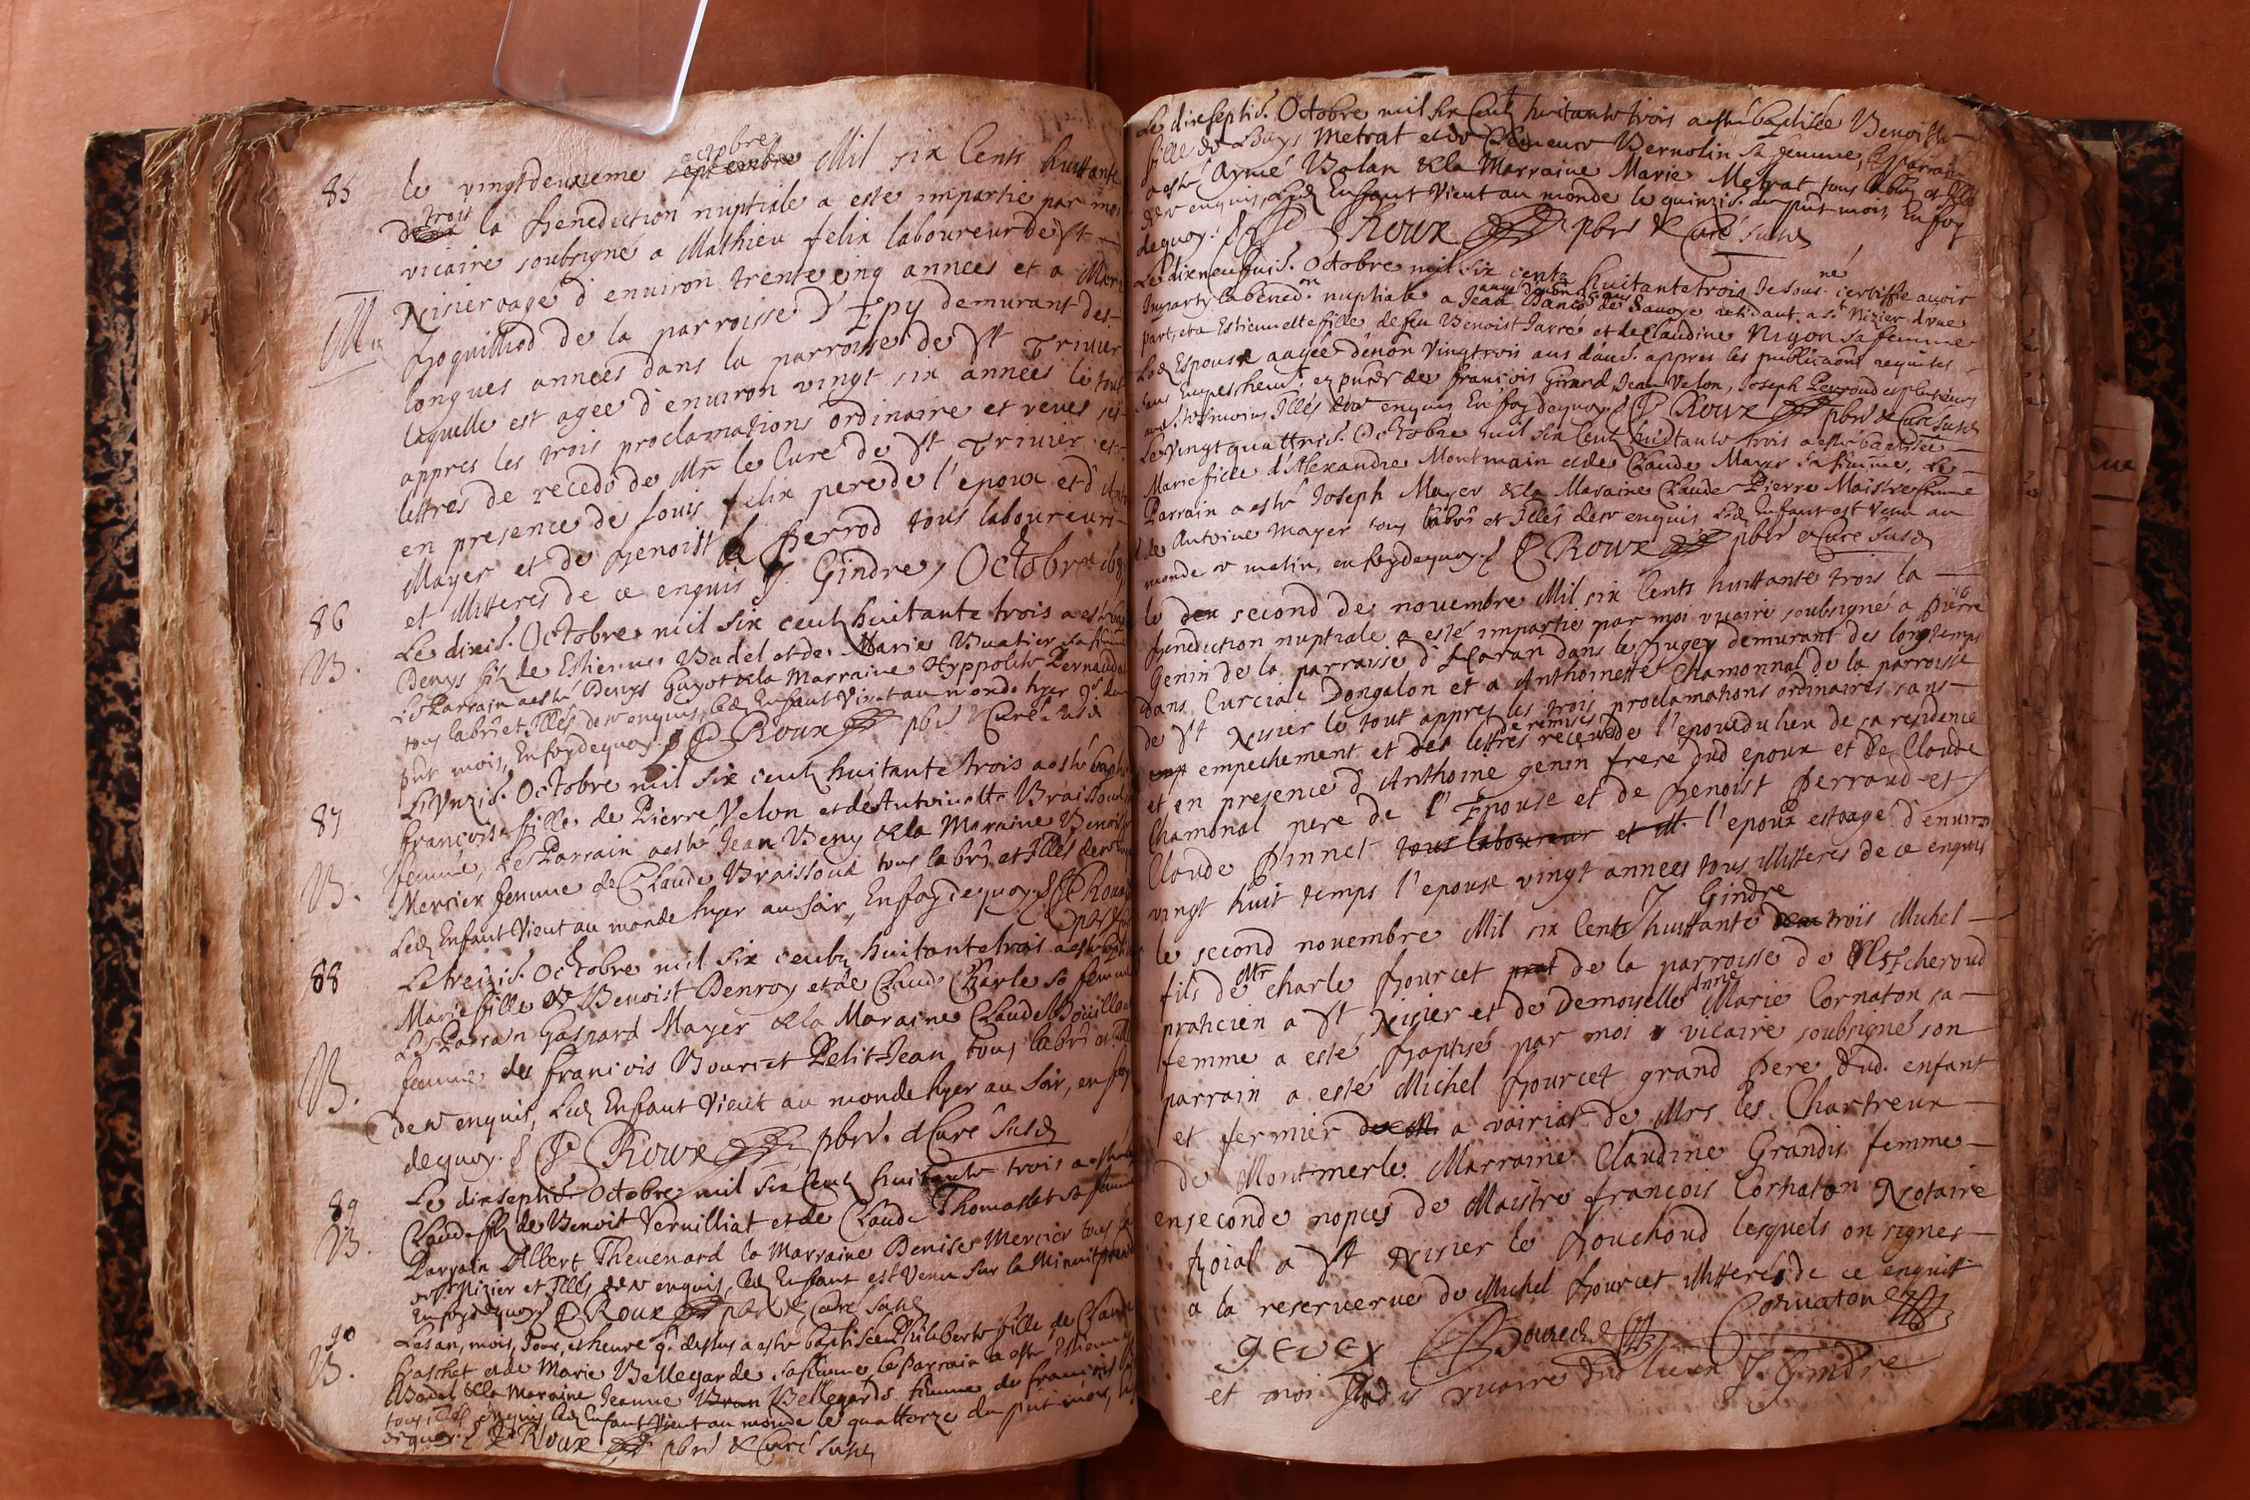 85
le vingt deuxieme septembre octobre Mil six Cents huittante
deux trois la benediction nuptiale a este impartie par moi
vicaire soubsigné a Mathieu felix laboureur de St
Nisier aagé d'environ trente cinq annees et a Marie
M
hoquilliod de la parroisse d'Epy demurant des
longues années dans la parroisse de St Trivier
laquelle est agee d'environ vingt six années le tout
appres les trois proclamations ordinaire et veues les
lettres de recedo de Mr le Curé de St Trivier et
en presence de Louis felix pere de l'epoux et d'
Mayer et de benoist perrod tous laboureurs
et illitteres de ce enquis J. Gindre, Octobre
86
Le dixie. Octobre mil six centz huitante trois a esté
B.
Denys filz de Estienne Badel et de Marie Buatier sa femme
Le Parrain a esté Denys Guyot & la Marraine Hyppolite Pernaud
tous labrs et Illés de ce enquis, led. Enfant vient au monde hyer
pnt mois, En foy de quoy. P. Roux pbre & Curé susd
87
L'unzie. Octobre mil six centz huitante trois a esté bapt
françoise fille de Pierre Velon et de Antoinette Braissoud
femme, Le Parrain a esté Jean Beny & la Maraine Benoiste
B.
Mercier femme de Claude Braissoud tous labrs et Illés de ce
Led. Enfant vient au monde hyer au soir, En foy de quoy. P. Roux
88
Le treizie. Octobre mil six centz huitante trois a esté
Marie fille de Benoist Denroy et de Claude Charle sa femme
Le Parrain Gaspard Mayer & la Maraine Claude Bouillou
B.
femme de francois Bouriet Petit-Jean tous labrs
de ce enquis, Led. Enfant vient au monde hyer au soir, en foy
de quoy. P. Roux pbre. & Curé susd
89
Le dixseptie. Octobre mil six centz huitante trois a esté
B.
Claude filz de Benoit Vernilliat et de Claude Thomasset sa femme
Parrain Albert Thevenard la Marraine Denise Mercier tous
de St Nizier et Illés de ce enquis, led. Enfant est venu sur la minuit
En foy de quoy P. Roux pbre & Curé susd
90
Les an, mois, Jour, et heure q dessus a esté baptisée Philiberte fille de Claude
B.
baschet et de Marie Bellegarde sa femme le Parrain a esté Estienne
Badel & la Maraine Jeanne Bran Bellegarde femme de francois
tous Illés enquis led. Enfant vient au monde le quattorze du pnt mois,
de quoy. P. Roux pbre & Curé susd
Le dixseptie. Octobre mil six centz huitante trois a esté baptisée Benoiste
fille de Louys Metrat et de Clemence Bernolin sa femme, Le Parrain
a esté Aymé Bolan & la Marraine Marie Metrat tous labrs et Illés
de ce enquis, Led. Enfant vient au monde le quinzie. du pnt mois, En foy
de quoy. P. Roux pbre & Curé susd
Le dixneufvie. Octobre mil six centz huitante trois Je sous-né certiffie avoir
Imparty la bened.on nuptiale a Jean Dances de Savoye residant a St Nizier d'une
part, et a Estiennette fille de feu Benoist Jarré et de Claudine Nigon sa femme
Lad. Espouse aagée d'environ vingtrois ans d'aud. appres les publicaons requises
sans empeschemt. en pnce de francois Girard Jean Velon, Joseph Perroud et plusieurs
au. tesmoins Illés de ce enquis En foy de quoy. P. Roux pbre & Curé susd
Le vingt quattrie. Octobre mil six centz huitante trois a esté baptisée
Marie fille d'Alexandre Montmain et de Claude Mayer sa femme, Le
Parrain a esté Joseph Mayer & la Maraine Claude Pierre Maistre femme
de Antoine Mayer tous labrs et Illés de ce enquis Led. Enfant est venu au
monde ce matin, en foy de quoy. P. Roux pbre & Curé susd
le deu second de novembre Mil six Cents huittante trois la
benediction nuptiale a esté impartie par moi vicaire soubsigné a Pierre
Genin de la parroisse d'Haran dans le bugey demurant des longtemps
dans Curciat Dongalon et a Anthoinette Chamonnal de la parroisse
de St Nisier le tout appres les trois proclamations ordinaires sans
emp empechement et des lettres de remise receu de l'epoux du lieu de sa residence
et en presence d'Anthoine genin frere dud epoux et de Claude
Chamonal pere de l'Epouse et de benoist perraud et
Claude pinnet tous laboureur et ill. l'epoux est aagé d'environ
vingt huit temps l'epouse vingt annees tous illitteres de ce enquis
J Gindre
le second novembre Mil six Cents huittante deux trois Michel
fils de Mr charle bourcet prat de la parroisse de l'Escheroud
praticien a St Nisier et de demoiselle Anne Marie Cornaton sa
femme a esté baptisé par moi vicaire soubsigné son
parrain a esté Michel bourcet grand pere dud. enfant
et fermier a voiriat de Mrs les Chartreux
de Montmerle. Marraine Claudine Grandis femme
en seconde nopces de Maistre francois Cornaton Notaire
Roial a St Nisier le bouchoud lesquels on signes
a la reserverve de Michel bourcet illitteré de ce enquit
gevex Bourcet Cornaton
et moi vicaire dud lieu J. Gindre